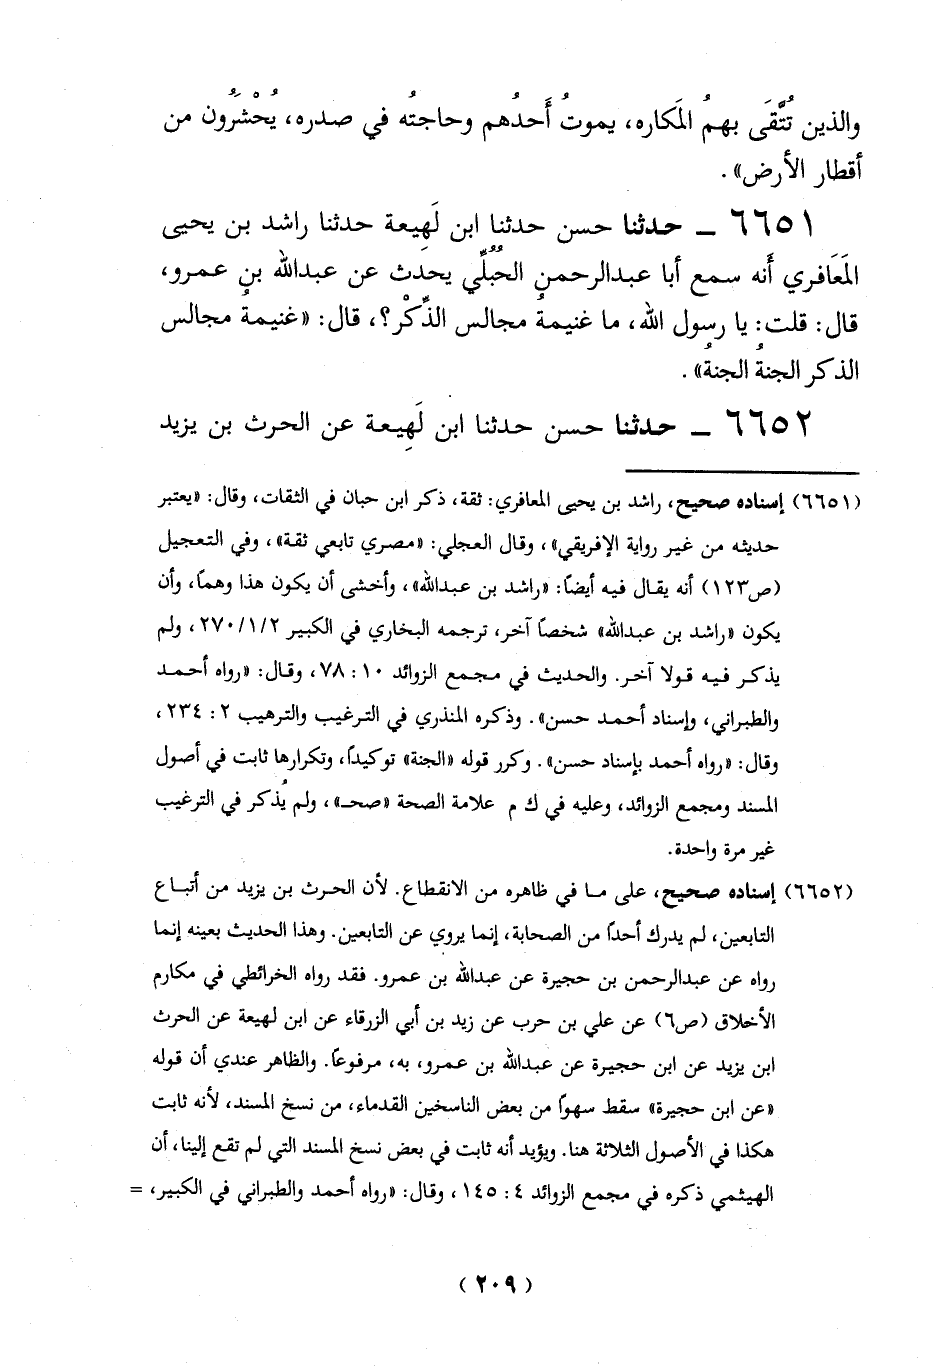 والذين تُتَّقَى بهمُ المَكاره، يموتُ أَحدُهم وحاجتُه في صدره، يُحْشَرُون من
أقطار الأرض».
٦٦٥١ ــ حدثنا حسن حدثنا ابن لَهِيعة حدثنا راشد بن يحيى
المَعَافري أَنه سمع أبا عبدالرحمن الحُبُلِّي يحدث عن عبدالله بن عمرو،
قال: قلت: يا رسول الله، ما غنيمةُ مجالس الذِّكْر؟، قال: «غنيمةُ مجالس
الذكر الجنةُ الجنةُ».
٦٦٥٢ ــ حدثنا حسن حدثنا ابن لَهِيعة عن الحرث بن يزيد
(٦٦٥١) إسناده صحيح، راشد بن يحيى المعافري: ثقة، ذكر ابن حبان في الثقات، وقال: «يعتبر
حديثه من غير رواية الإفريقي»، وقال العجلي: «مصري تابعي ثقة»، وفي التعجيل
(ص١٢٣) أنه يقال فيه أيضاً: «راشد بن عبدالله»، وأخشى أن يكون هذا وهماً، وأن
يكون «راشد بن عبدالله» شخصاً آخر، ترجمه البخاري في الكبير ٢٧٠/١/٢، ولم
يذكر فيه قولا آخر. والحديث في مجمع الزوائد ١٠: ٧٨، وقال: «رواه أحمد
والطبراني، وإسناد أحمد حسن». وذكره المنذري في الترغيب والترهيب ٢: ٢٣٤،
وقال: «رواه أحمد بإسناد حسن». وكرر قوله «الجنة» توكيداً، وتكرارها ثابت في أصول
المسند ومجمع الزوائد، وعليه في ك م علامة الصحة «صحـ»، ولم يُذكر في الترغيب
غير مرة واحدة.
(٦٦٥٢) إسناده صحيح، على ما في ظاهره من الانقطاع. لأن الحرث بن يزيد من أتباع
التابعين، لم يدرك أحداً من الصحابة، إنما يروي عن التابعين. وهذا الحديث بعينه إنما
رواه عن عبدالرحمن بن حجيرة عن عبدالله بن عمرو. فقد رواه الخرائطي في مكارم
الأخلاق (ص٦) عن علي بن حرب عن زيد بن أبي الزرقاء عن ابن لهيعة عن الحرث
ابن يزيد عن ابن حجيرة عن عبدالله بن عمرو، به، مرفوعاً. والظاهر عندي أن قوله
«عن ابن حجيرة» سقط سهواً من بعض الناسخين القدماء، من نسخ المسند، لأنه ثابت
هكذا في الأصول الثلاثة هنا. ويؤيد أنه ثابت في بعض نسخ المسند التي لم تقع إلينا، أن
الهيثمي ذكره في مجمع الزوائد ٤: ١٤٥، وقال: «رواه أحمد والطبراني في الكبير، =
(٢٠٩)